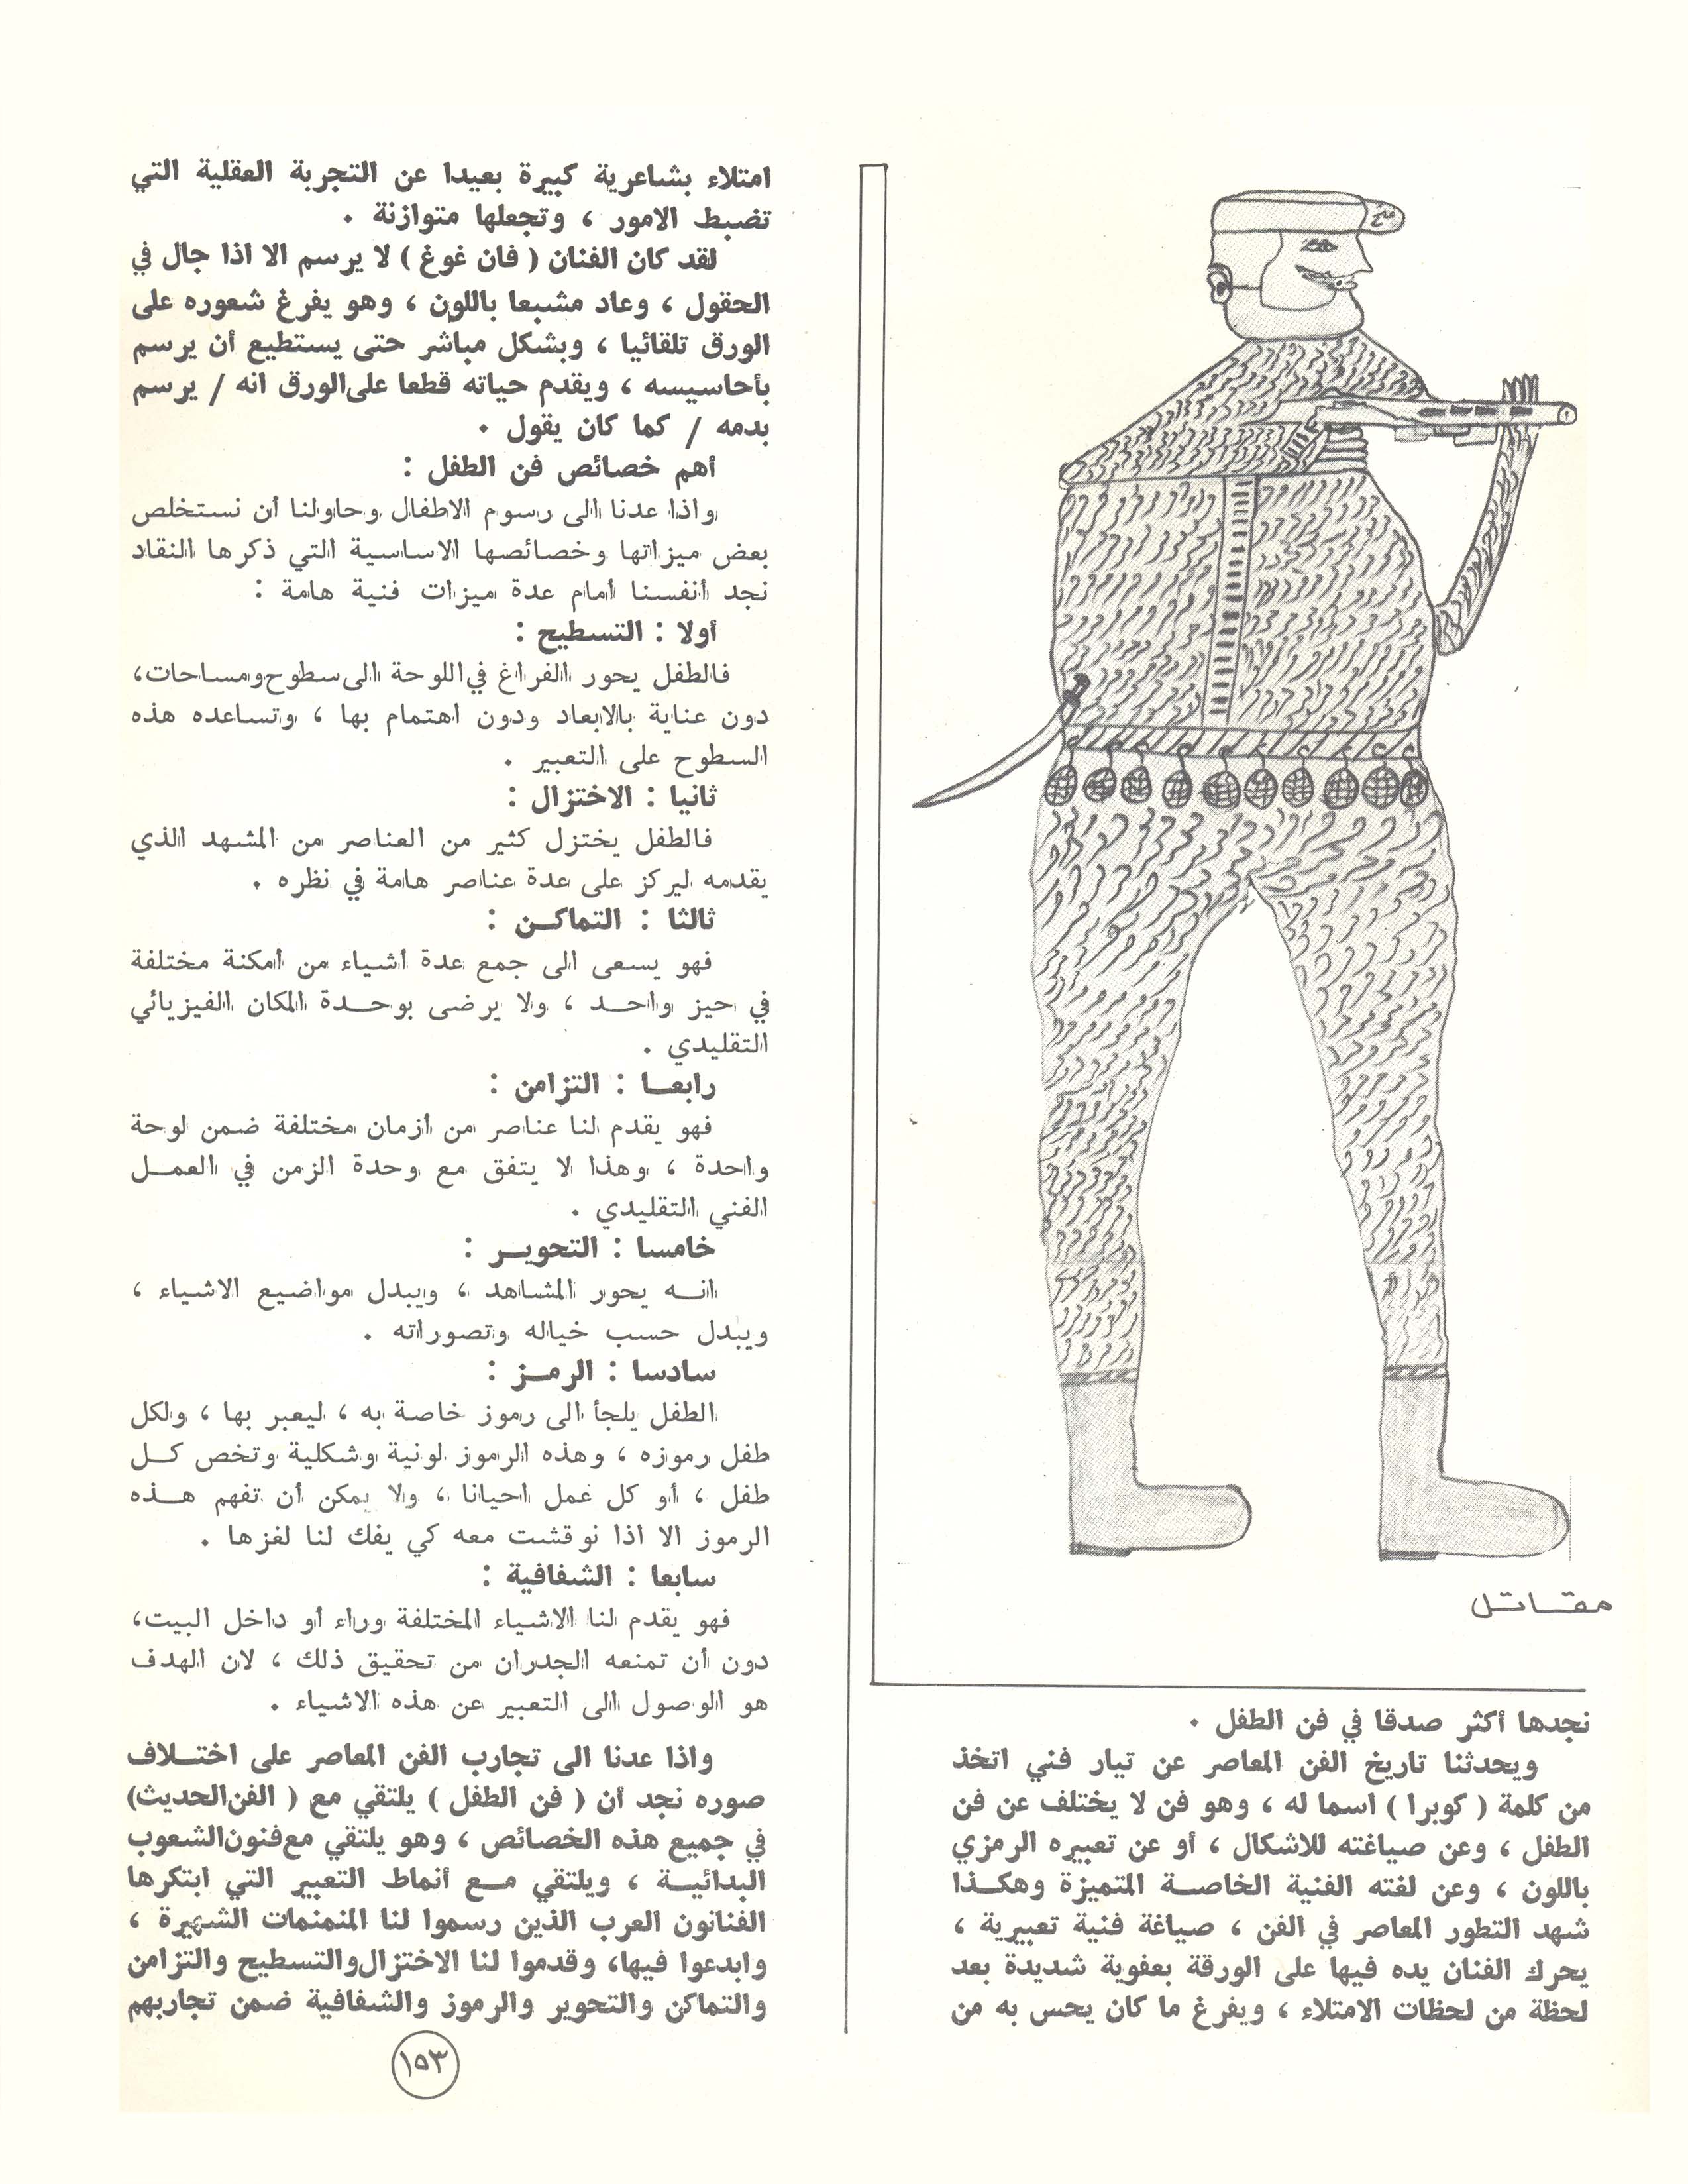 مقاتل
نجدها أكثر صدقا في فن الطفل .
ويحدثنا تاريخ الفن المعاصر عن تيار فني اتخذ
من كلمة ( كوبرا ) اسما له ، وهو فن لا يختلف عن فن
الطفل ، وعن صياغته للاشكال ، أو عن تعبيره الرمزي
باللون ، وعن لغته الفنية الخاصة المتميزة وهكذا
شهد التطور المعاصر في الفن ، صياغة فنية تعبيرية ،
يحرك الفنان يده فيها على الورقة بعفوية شديدة بعد
لحظة من لحظات الامتلاء ، ويفرغ ما كان يحس به من
امتلاء بشاعرية كبيرة بعيدا عن التجربة العقلية التي
تضبط الامور ، وتجعلها متوازنة .
لقد كان الفنان ( فان غوغ ) لا يرسم الا اذا جال في
الحقول ، وعاد مشبعا باللون ، وهو يفرغ شعوره على
الورق تلقائيا ، وبشكل مباشر حتى يستطيع أن يرسم
بأحاسيسه ، ويقدم حياته قطعا على الورق انه / يرسم
بدمه / كما كان يقول .
أهم خصائص فن الطفل :
واذا عدنا الى رسوم الاطفال وحاولنا أن نستخلص
بعض ميزاتها وخصائصها الاساسية التي ذكرها النقاد
نجد أنفسنا أمام عدة ميزات فنية هامة :
أولا : التسطيح :
فالطفل يحور الفراغ في اللوحة الى سطوح ومساحات،
دون عناية بالابعاد ودون اهتمام بها ، وتساعده هذه
السطوح على التعبير .
ثانيا : الاختزال :
فالطفل يختزل كثير من العناصر من المشهد الذي
يقدمه ليركز على عدة عناصر هامة في نظره .
ثالثا : التماكن :
فهو يسعى الى جمع عدة أشياء من أمكنة مختلفة
في حيز واحد ، ولا يرضى بوحدة المكان الفيزيائي
التقليدي .
رابعا : التزامن :
فهو يقدم لنا عناصر من أزمان مختلفة ضمن لوحة
واحدة ، وهذا لا يتفق مع وحدة الزمن في العمل
الفني التقليدي .
خامسا : التحوير :
انه يحور المشاهد ، ويبدل مواضيع الاشياء ،
ويبدل حسب خياله وتصوراته .
سادسا : الرمز :
الطفل يلجأ الى رموز خاصة به ، ليعبر بها ، ولكل
طفل رموزه ، وهذه الرموز لونية وشكلية وتخص كل
طفل ، أو كل عمل احيانا ، ولا يمكن أن تفهم هذه
الرموز الا اذا نوقشت معه كي يفك لنا لغزها .
سابعا : الشفافية :
فهو يقدم لنا الاشياء المختلفة وراء أو داخل البيت،
دون أن تمنعه الجدران من تحقيق ذلك ، لان الهدف
هو الوصول الى التعبير عن هذه الاشياء .
واذا عدنا الى تجارب الفن المعاصر على اختلاف
صوره نجد أن ( فن الطفل ) يلتقي مع ( الفن الحديث)
في جميع هذه الخصائص ، وهو يلتقي مع فنون الشعوب
البدائية ، ويلتقي مع أنماط التعبير التي ابتكرها
الفنانون العرب الذين رسموا لنا المنمنمات الشهيرة ،
وابدعوا فيها، وقدموا لنا الاختزال والتسطيح والتزامن
والتماكن والتحوير والرموز والشفافية ضمن تجاربهم
١٥٣